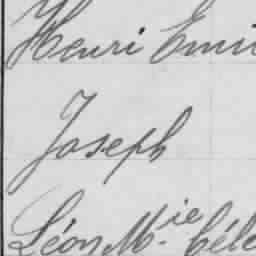 Henri Emi
Joseph
Léon M.ie Céle